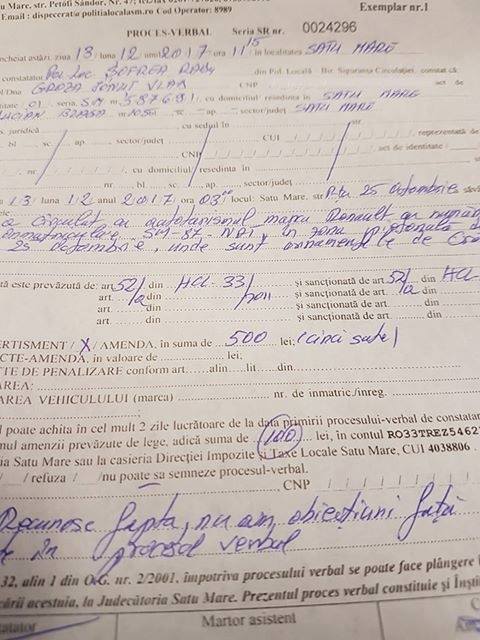 u Mare, str. Petöfi Sándor, Nr. 47; 
Email : dispecerat@politialocalsm.ro Cod Operator: 8989 Exemplar nr.1
PROCES-VERBAL Seria SR nr. 0024296
Încheiat astăzi, ziua 13 / luna 12 anul 2017 ora 11 15 în localitatea SATU MARE
constatator Pol. Loc. din Pol. Locală Bir. Siguranța Circulației, constat că:
l/Dna GROZA IONUT VLAD CNP act de
titate /01 seria SM nr. 587691 cu domiciliu/reședința în SATU MARE
LUCIAN BLAGA nr. sc. ap. sector/județ SATU MARE
, cu sediul în str.
bl. sc. ap. sector/județ CUI , reprezentată de
CNP act de identitate /
nr. , cu domiciliu/reședința în
nr. bl. sc. , ap. sector/județ
13 / luna 12 anul 2017 ora 03 locul: Satu Mare, str. 25 Octombrie
a circulat cu autoturismul marca Renault cu număr
SM-87- în zona pietonală
25 Octombrie, unde sunt ornamentele de
tă este prevăzută de: art. 52/a din HCL 33/2011 și sancționată de art. 52/a din HCL
art. din și sancționată de art. din
art. din și sancționată de art. din
art. din și sancționată de art. din
ERTISMENT / X / AMENDA, în suma de 500 lei; (cinci sute)
CTE-AMENDA, în valoare de lei;
TE DE PENALIZARE conform art. alin lit din
AREA:
AREA VEHICULULUI (marca) nr. de inmatric/inreg.
poate achita în cel mult 2 zile lucrătoare de la data primirii procesului-verbal de constatar
mul amenzii prevăzute de lege, adică suma de 100 lei, în contul RO33TREZ5462
ia Satu Mare sau la casieria Direcției Impozite și Taxe Locale Satu Mare, CUI 4038806 .
/ refuza / /nu poate sa semneze procesul-verbal.
CNP
Recunosc fapta, nu am obiecțiuni față
de în procesul verbal
32, alin 1 din O.G. nr. 2/2001, împotriva procesului verbal se poate face plângere
cării acestuia, la Judecătoria Satu Mare. Prezentul proces verbal constituie și Înști
tatator Martor asistent